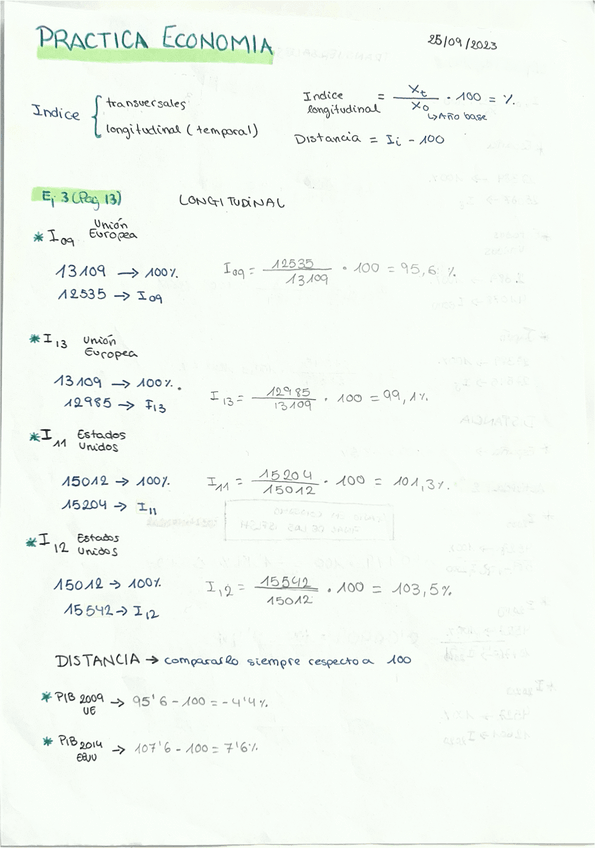 PRACTICA ECONOMIA
25/09/2023
Indice { transversales
longitudinal (temporal)
Indice longitudinal = Xt / X0 · 100 = %
↳ Año base
Distancia = Ii - 100
Ej 3 (Pag 13) LONGITUDINAL
* I09 Unión Europea
13109 → 100%
12535 → I09
I09 = 12535 / 13109 · 100 = 95,6 %
* I13 Unión Europea
13109 → 100%.
12985 → I13
I13 = 12985 / 13109 · 100 = 99,1%.
* I11 Estados Unidos
15012 → 100%
15204 → I11
I11 = 15204 / 15012 · 100 = 101,3%.
* I12 Estados Unidos
15012 → 100%
15542 → I12
I12 = 15542 / 15012 · 100 = 103,5%
DISTANCIA → compararlo siempre respecto a 100
* PIB 2009 UE → 95'6 - 100 = -4'4%
* PIB 2014 EEUU → 107'6 - 100 = 7'6%